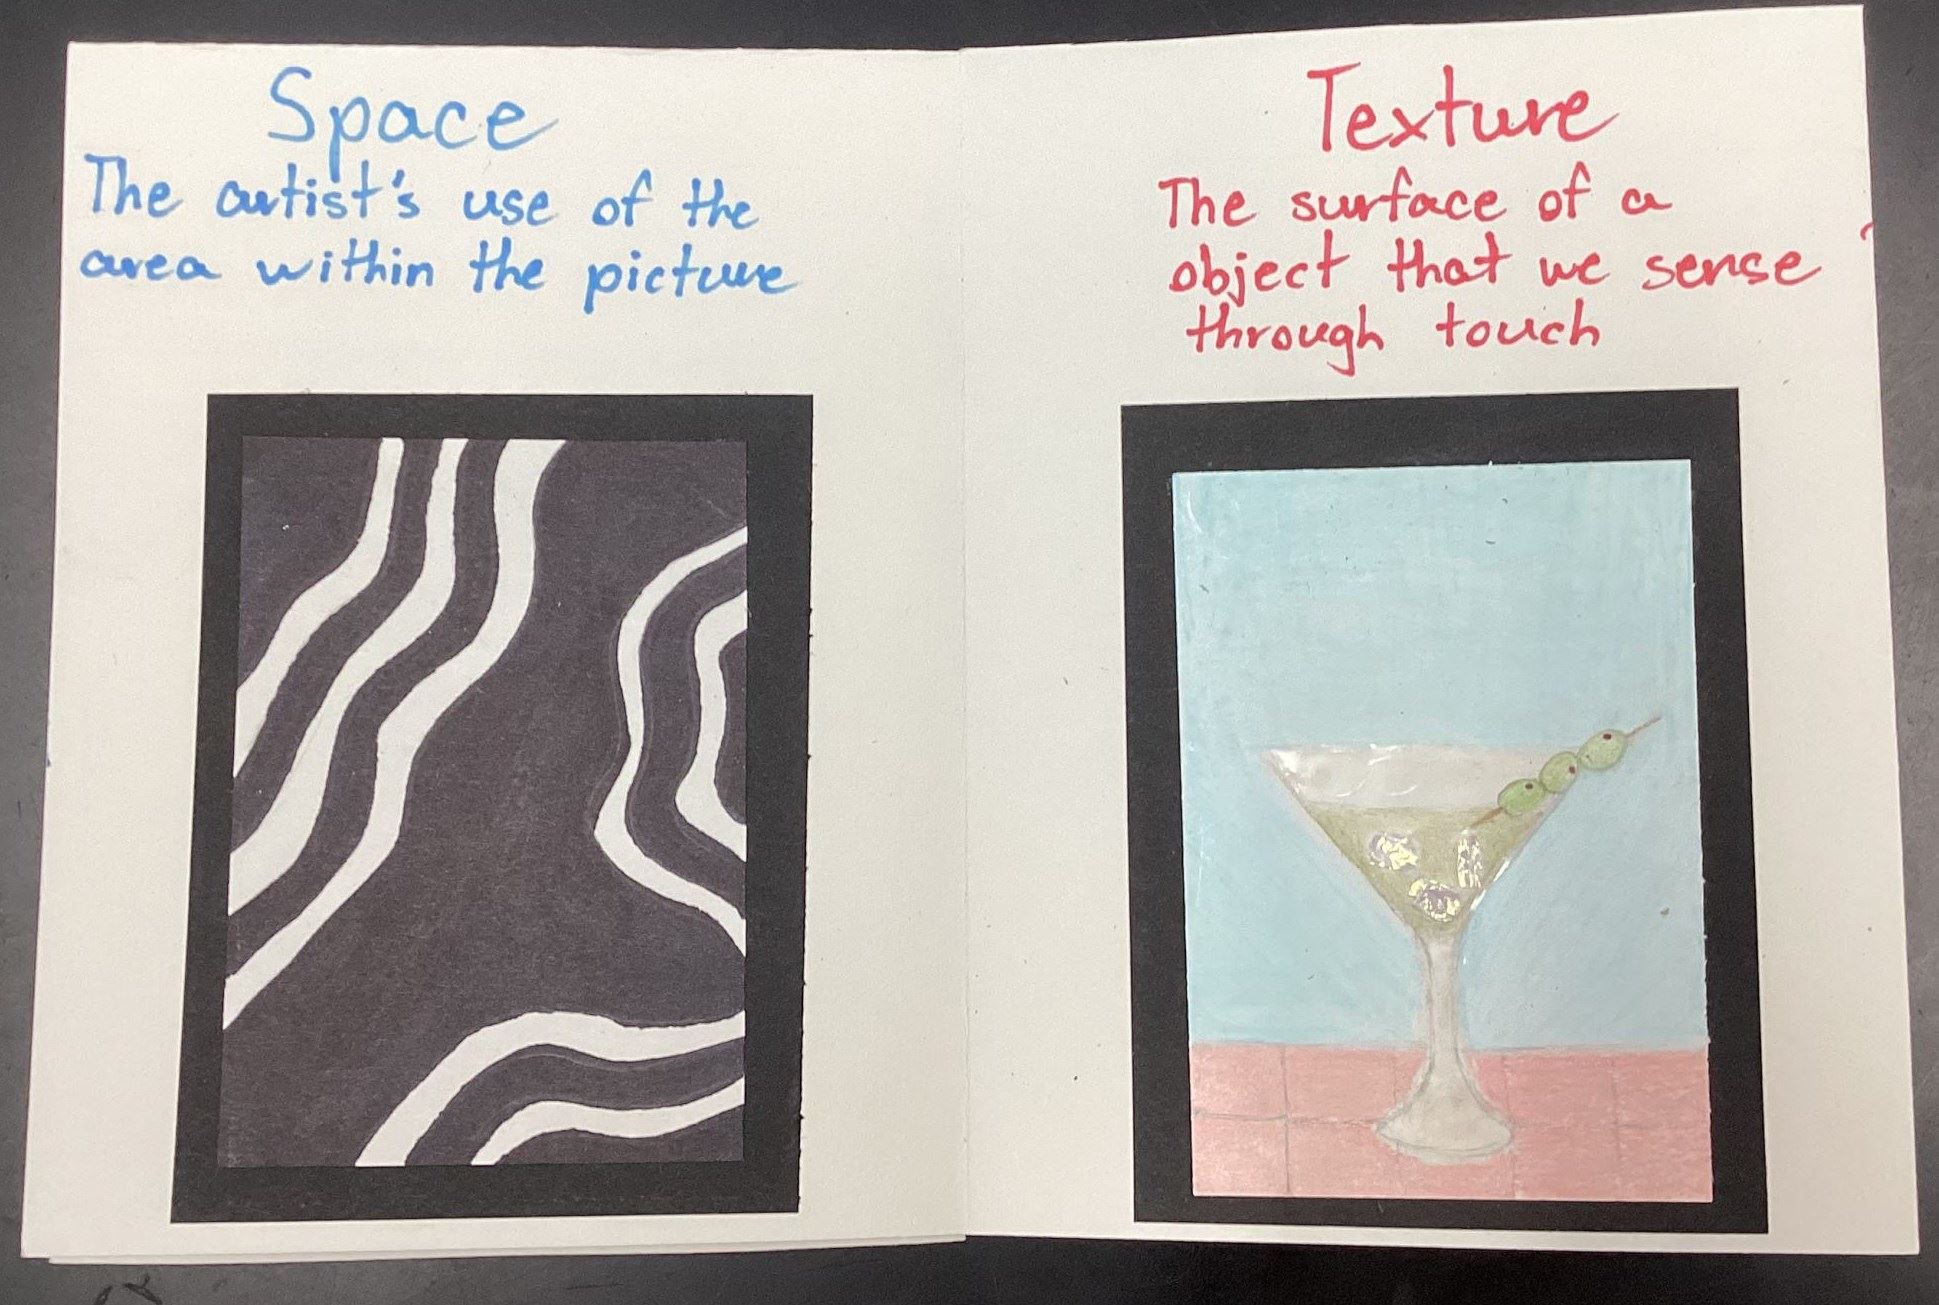 Space
The artist's use of the
area within the picture
Texture
The surface of a
object that we sense
through touch